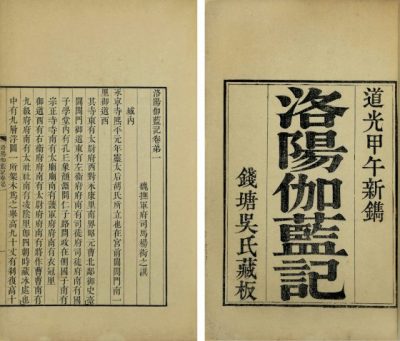 道光甲午新鐫
洛陽伽藍記
錢塘吳氏藏板
洛陽伽藍記卷第一
魏撫軍府司馬楊衒之撰
城內
永寧寺熙平元年靈太后胡氏所立也在宮前閶闔門南一
里御道西
其寺東有太尉府西對永康里南界昭玄曹北鄰御史臺
閶闔門前御道東有左衛府府南有司徒府司徒府南有國
子學堂內有孔丘像顏淵問仁子路問政在側國子南有
宗正寺寺南有太廟廟南有護軍府府南有衣冠里
御道西有右衛府府南有太尉府府南有將作曹曹南有
九級府府南有太社社南有凌陰里即四朝時藏冰處也
中有九層浮圖一所架木為之舉高九十丈有剎復高十